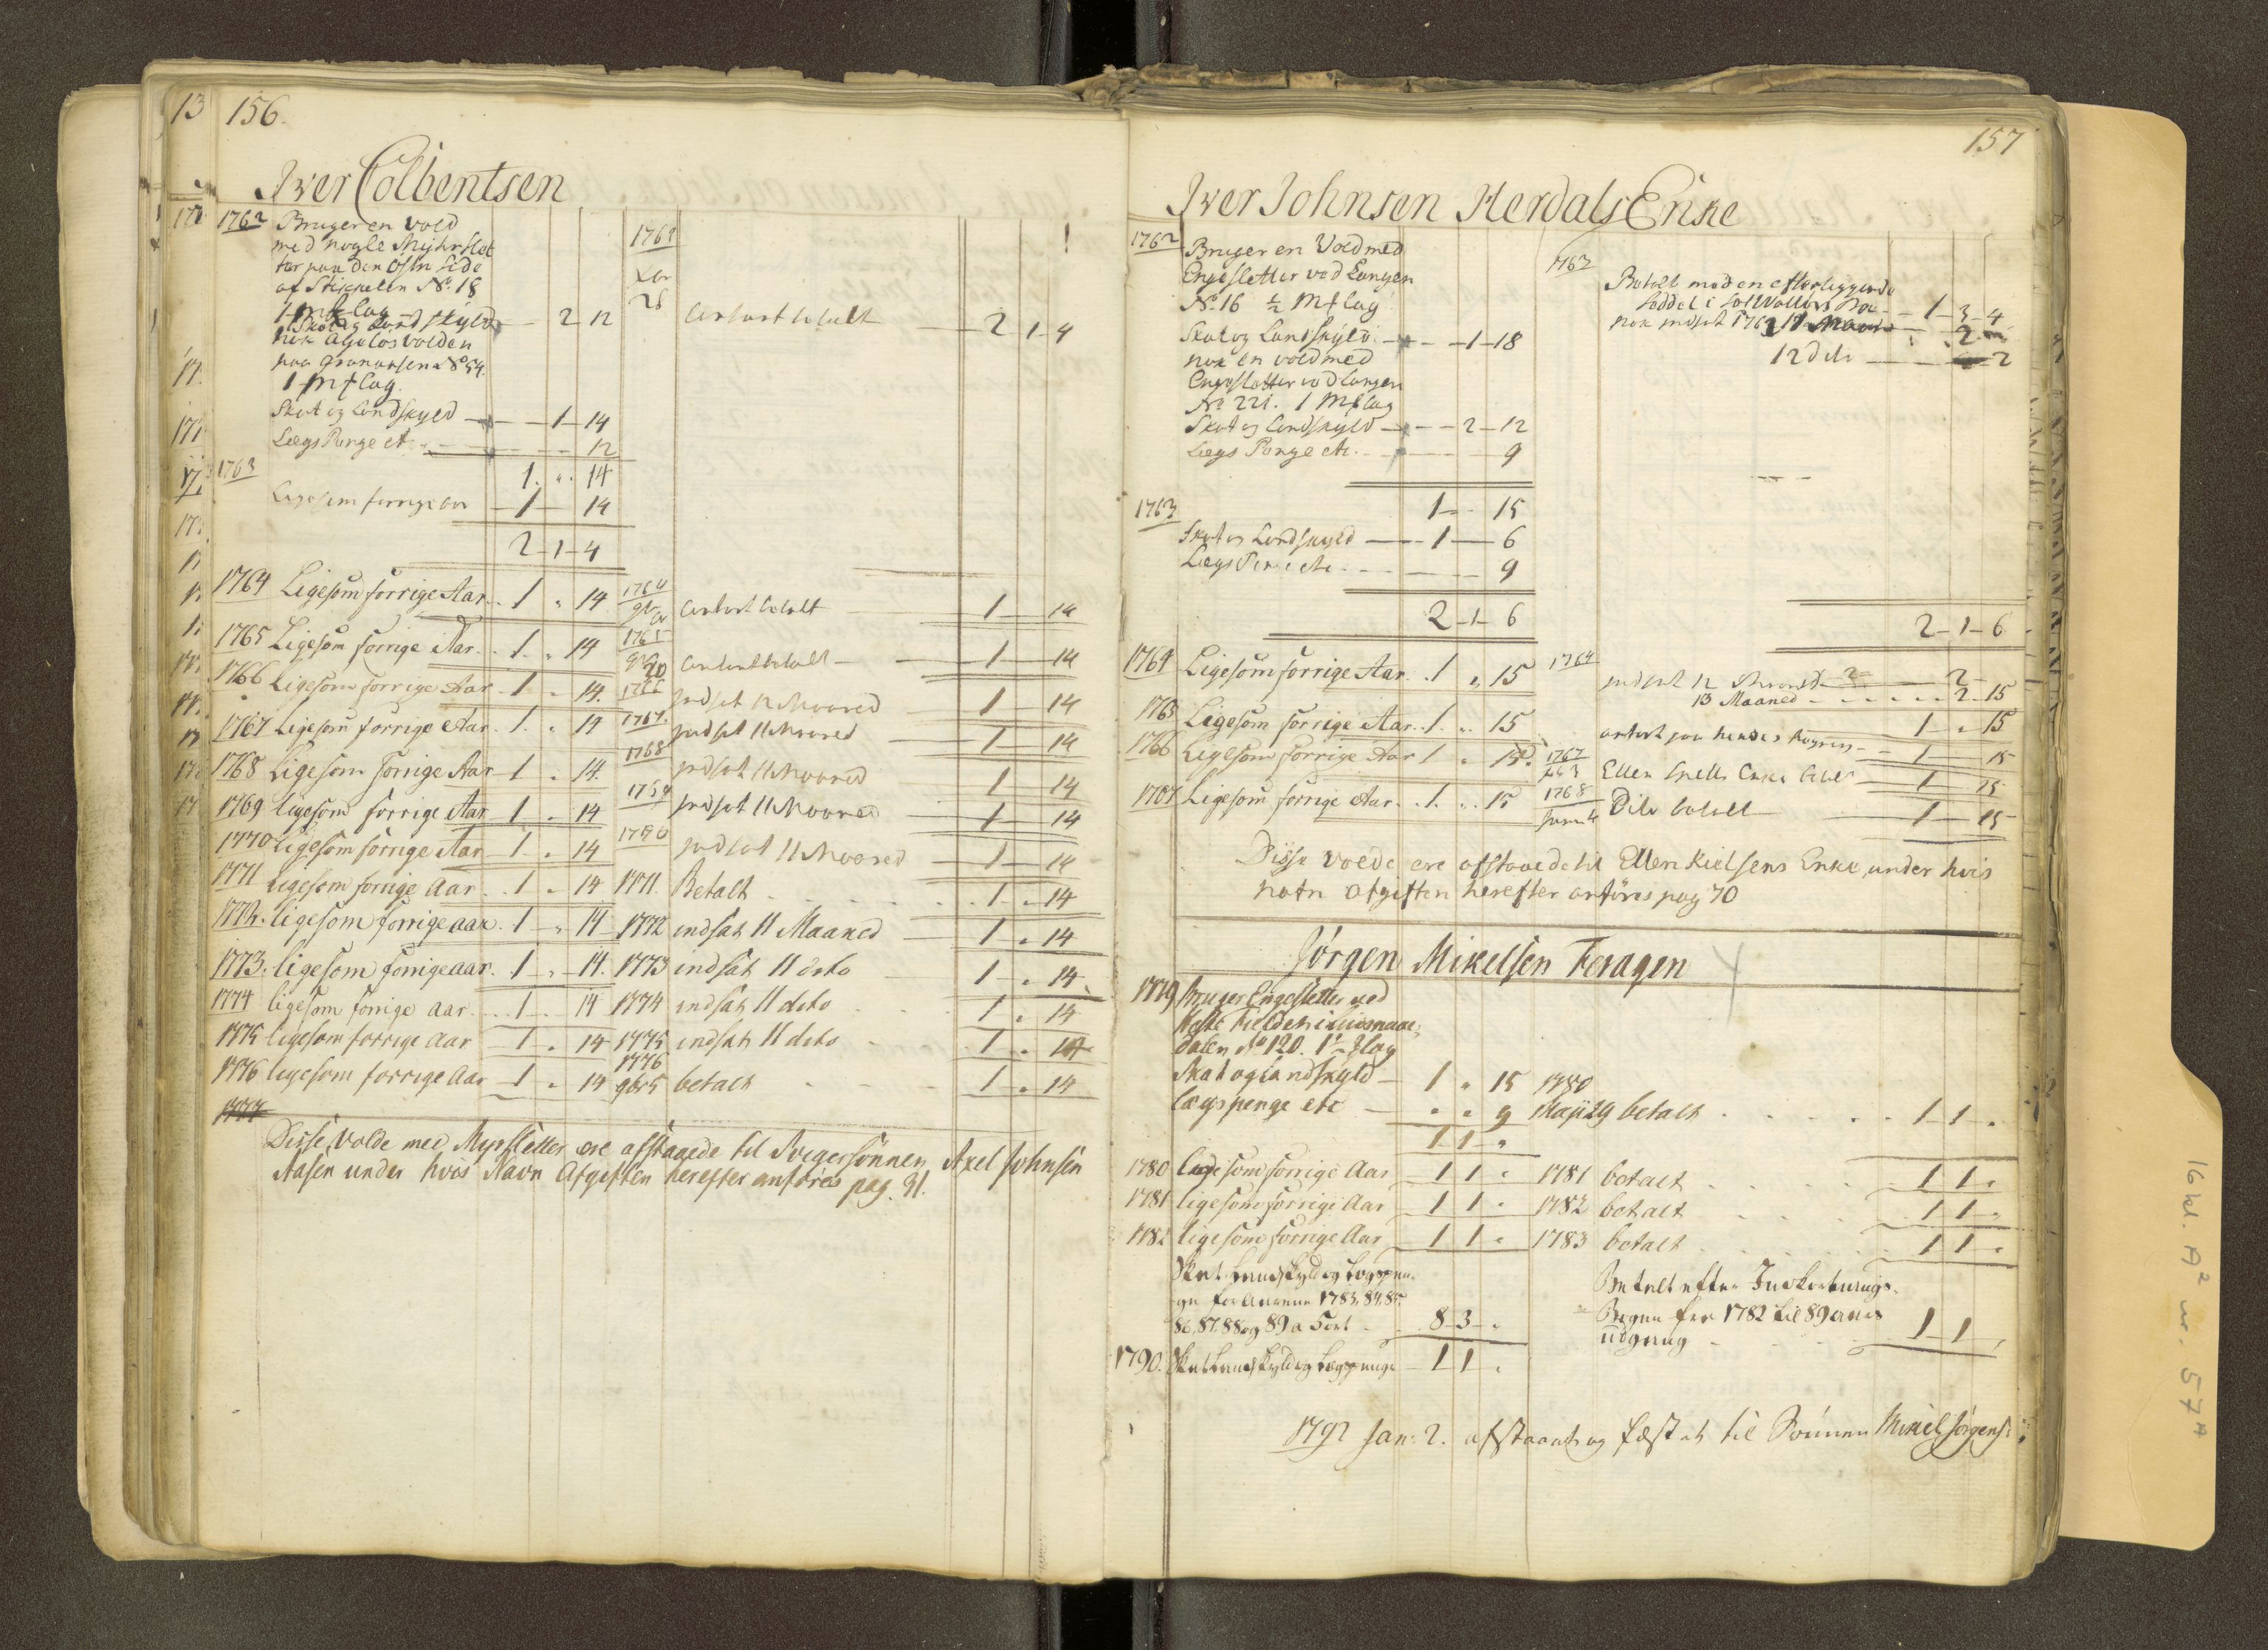 13 156.
Iver Colbentsen
1762 Bruger en vold
med nogle Myhrslet
ter paa den Östre side
af Stikkelen No. 18
1 mk lag
Skat og Landskyld — 2 - 12
nok Agelös volden
No 54.
1 mk lag.
Skat og Landskyld — 1 - 14
Lægs Penge etc. — 12
1. „. 14
1763
Ligesom forrige aar — 1 — 14
2 - 1 - 4
1764 Ligesom forrige Aar. 1 „ 14
1765 Ligesom forrige Aar. 1. „ 14
1766 Ligesom forrige Aar 1 „ 14.
1767 Ligesom forrige Aar. 1. „ 14
1768 Ligesom forrige Aar 1 „ 14.
1769 ligesom forrige Aar 1 „ 14
1770 ligesom forrige Aar 1 „ 14
1771 ligesom forrige Aar. 1 „ 14
1772. ligesom forrige aar. 1 „ 14
1773. ligesom forrige aar. 1 „ 14.
1774 ligesom forrige aar. 1. 14
1775 ligesom forrige Aar 1 „ 14
1776 ligesom forrige Aar 1 „ 14
1777
1763
28 betalt — 2 1 4
1764 betalt — 1 — 14
1765
20 betalt — 1 — 14
1766 indsat 12 Maaned — 1 — 14
1767. indsat 11 Maaned — 1 — 14
1768 indsat 11 Maaned 1 — 14
1769 indsat 11 Maaned — 1 — 14
1770 indsat 11 Maaned — 1 — 14
1771. Betalt . . . 1. „ 14
1772 indsat 11 Maaned — 1 „ 14
1773 indsat 11 dito 1 „ 14.
1774 indsat 11 dito . . 1 „ 14
1775 indsat 11 dito . 1 „ 14
1776
9br 5 betalt . . 1 „ 14
Disse Volde med Myrsletter ere afstaaede til Svigersönnen Axel Johnsen
Aasen under hvis Navn Afgiften herefter anföres pag. 91.
157
Iver Johnsen Herdals Enke
1762 Bruger en Vold med
Engesletter ved Langen
No. 16 ½ Mk lag
Skat og Landskyld — 1 - 18
nok en vold med
Engesletter ved Langen
No 221. 1 Mk lag
Skat og Landskyld — 2 - 12
Lægs Penge etc. — 9
1 - 15
1763
Skat og Landskyld — 1 — 6
Lægs Penge etc. — 9
2 - 1 - 6
1764 Ligesom forrige Aar. 1 „ 15
1765 Ligesom forrige Aar. 1 „ 15
1766 Ligesom forrige Aar 1 „ 15.
1767 Ligesom forrige Aar. 1. „ 15
1763
Betalt med en efterliggende
Seddel — 1 - 3 - 4
nok indsat 1763 — 2
12 dito — 2
2 - 1 - 6
1764
indsat 12 Maaned — 2 -
13 Maaned . . . 2 - 15
1 „ 15
anfört paa hendes — 1 — 15
1767
Ellen Enke — 1 — 15
1768
Dito betalt — 1 — 15
Disse volde ere afstaaede til Ellen Kielsens Enke, under hvis
nafn afgiften herefter anföres pag 70
Jörgen Mikelsen Feragen
1779 Bruger Engesletter ved
dalen No 120. 1
Skat og landskyld — 1 „ 15
lægspenge etc — „ „ 9
1 1 „
1780 ligesom forrige Aar 1 1 „
1781 ligesom forrige Aar 1 1 „
1782 ligesom forrige Aar 1 1 „
Skat Landskyld og Lægspen-
ge for Aarene 1783, 84, 85,
86, 87, 88 og 89 8 3 „
1790. Skat Landskyld og Lægspenge 1 1 „
1780
Maji 29 betalt . . . 1 1 „
1781 betalt . . . 1 1 „
1782 betalt . . . 1 1 „
1783 betalt . . . 1 1 „
Betalt efter Indkortnings-
Bogen for 1782 til 89 aars
udgang 1 1 „
1792 Jan: 2. afstaaet og fæstet til Sönnen Mikel Jörgens:
16 kl. A² nr. 57A